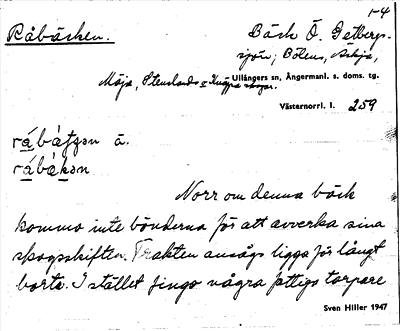 1-4
Råbäcken.
Bäck Ö. Getberg-
sjön; Bölens, Askja,
Mäja, Stenslands o Knäppa skogar.
Ullångers sn, Ångermanl. s. doms. tg.
Västernorrl. l. 259
rábáʃʒən ä.
rábákən
Norr om denna bäck
kommo inte bönderna för att avverka sina
skogsskiften. Trakten ansågs ligga för långt
borta. I stället fingo några fattiga torpare
Sven Hiller 1947